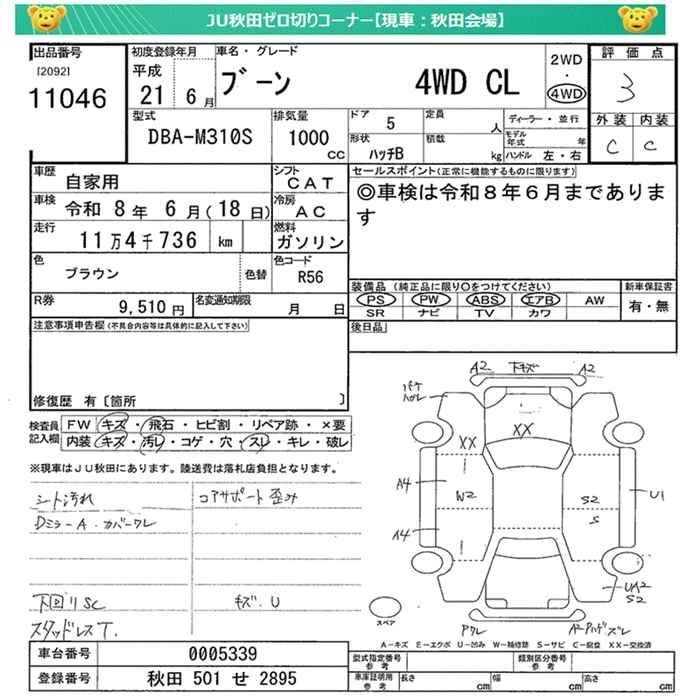 JU秋田ゼロ切りコーナー【現車：秋田会場】
出品番号
[2092]
11046
初度登録年月
平成
21 6 月
車名・グレード
ブーン 4WD CL
2WD
・
4WD
評価点
3
外装 内装
C C
型式
DBA-M310S
排気量
1000
CC
ドア 5
定員 人
形状 ハッチB
積載 kg
ディーラー・並行
モデル年式 年
ハンドル 左・右
車歴 自家用
車検 令和 8 年 6 月(18 日)
走行 11 万 4 千 736 km
色 ブラウン 色替
シフト CAT
冷房 AC
燃料 ガソリン
色コード R56
セールスポイント(正常に機能するものに限ります)
◎車検は令和8年6月まであります
装備品（純正品に限り○をつけてください）
PS PW ABS エアB AW
SR ナビ TV カワ
新車保証書
有・無
R券 9,510 円
名変通知期限 月 日
後日品
注意事項申告欄(不具合内容等は具体的に記入して下さい)
修復歴 有〔箇所 〕
検査員記入欄
FW キズ・飛石・ヒビ割・リペア跡・×要
内装 キズ・汚れ・コゲ・穴・スレ・キレ・破レ
※現車はJU秋田にあります。陸送費は落札店負担となります。
シート汚れ
Dミラ-A・カバーワレ
下回リSC
スタッドレスT.
コアサポート歪み
キズ.U
A2 下キズ A2
XX
XX
A4
W2
S2
S
U1
A4
UA2
S2
スペア
A-キズ E-エクボ U-凹み W-補修跡 S-サビ C-腐食 XX-交換済
車台番号 0005339
登録番号 秋田 501 せ 2895
型式指定番号
参考
類別区分番号
参考
車庫証明用
参考
長さ cm
幅 cm
高さ cm